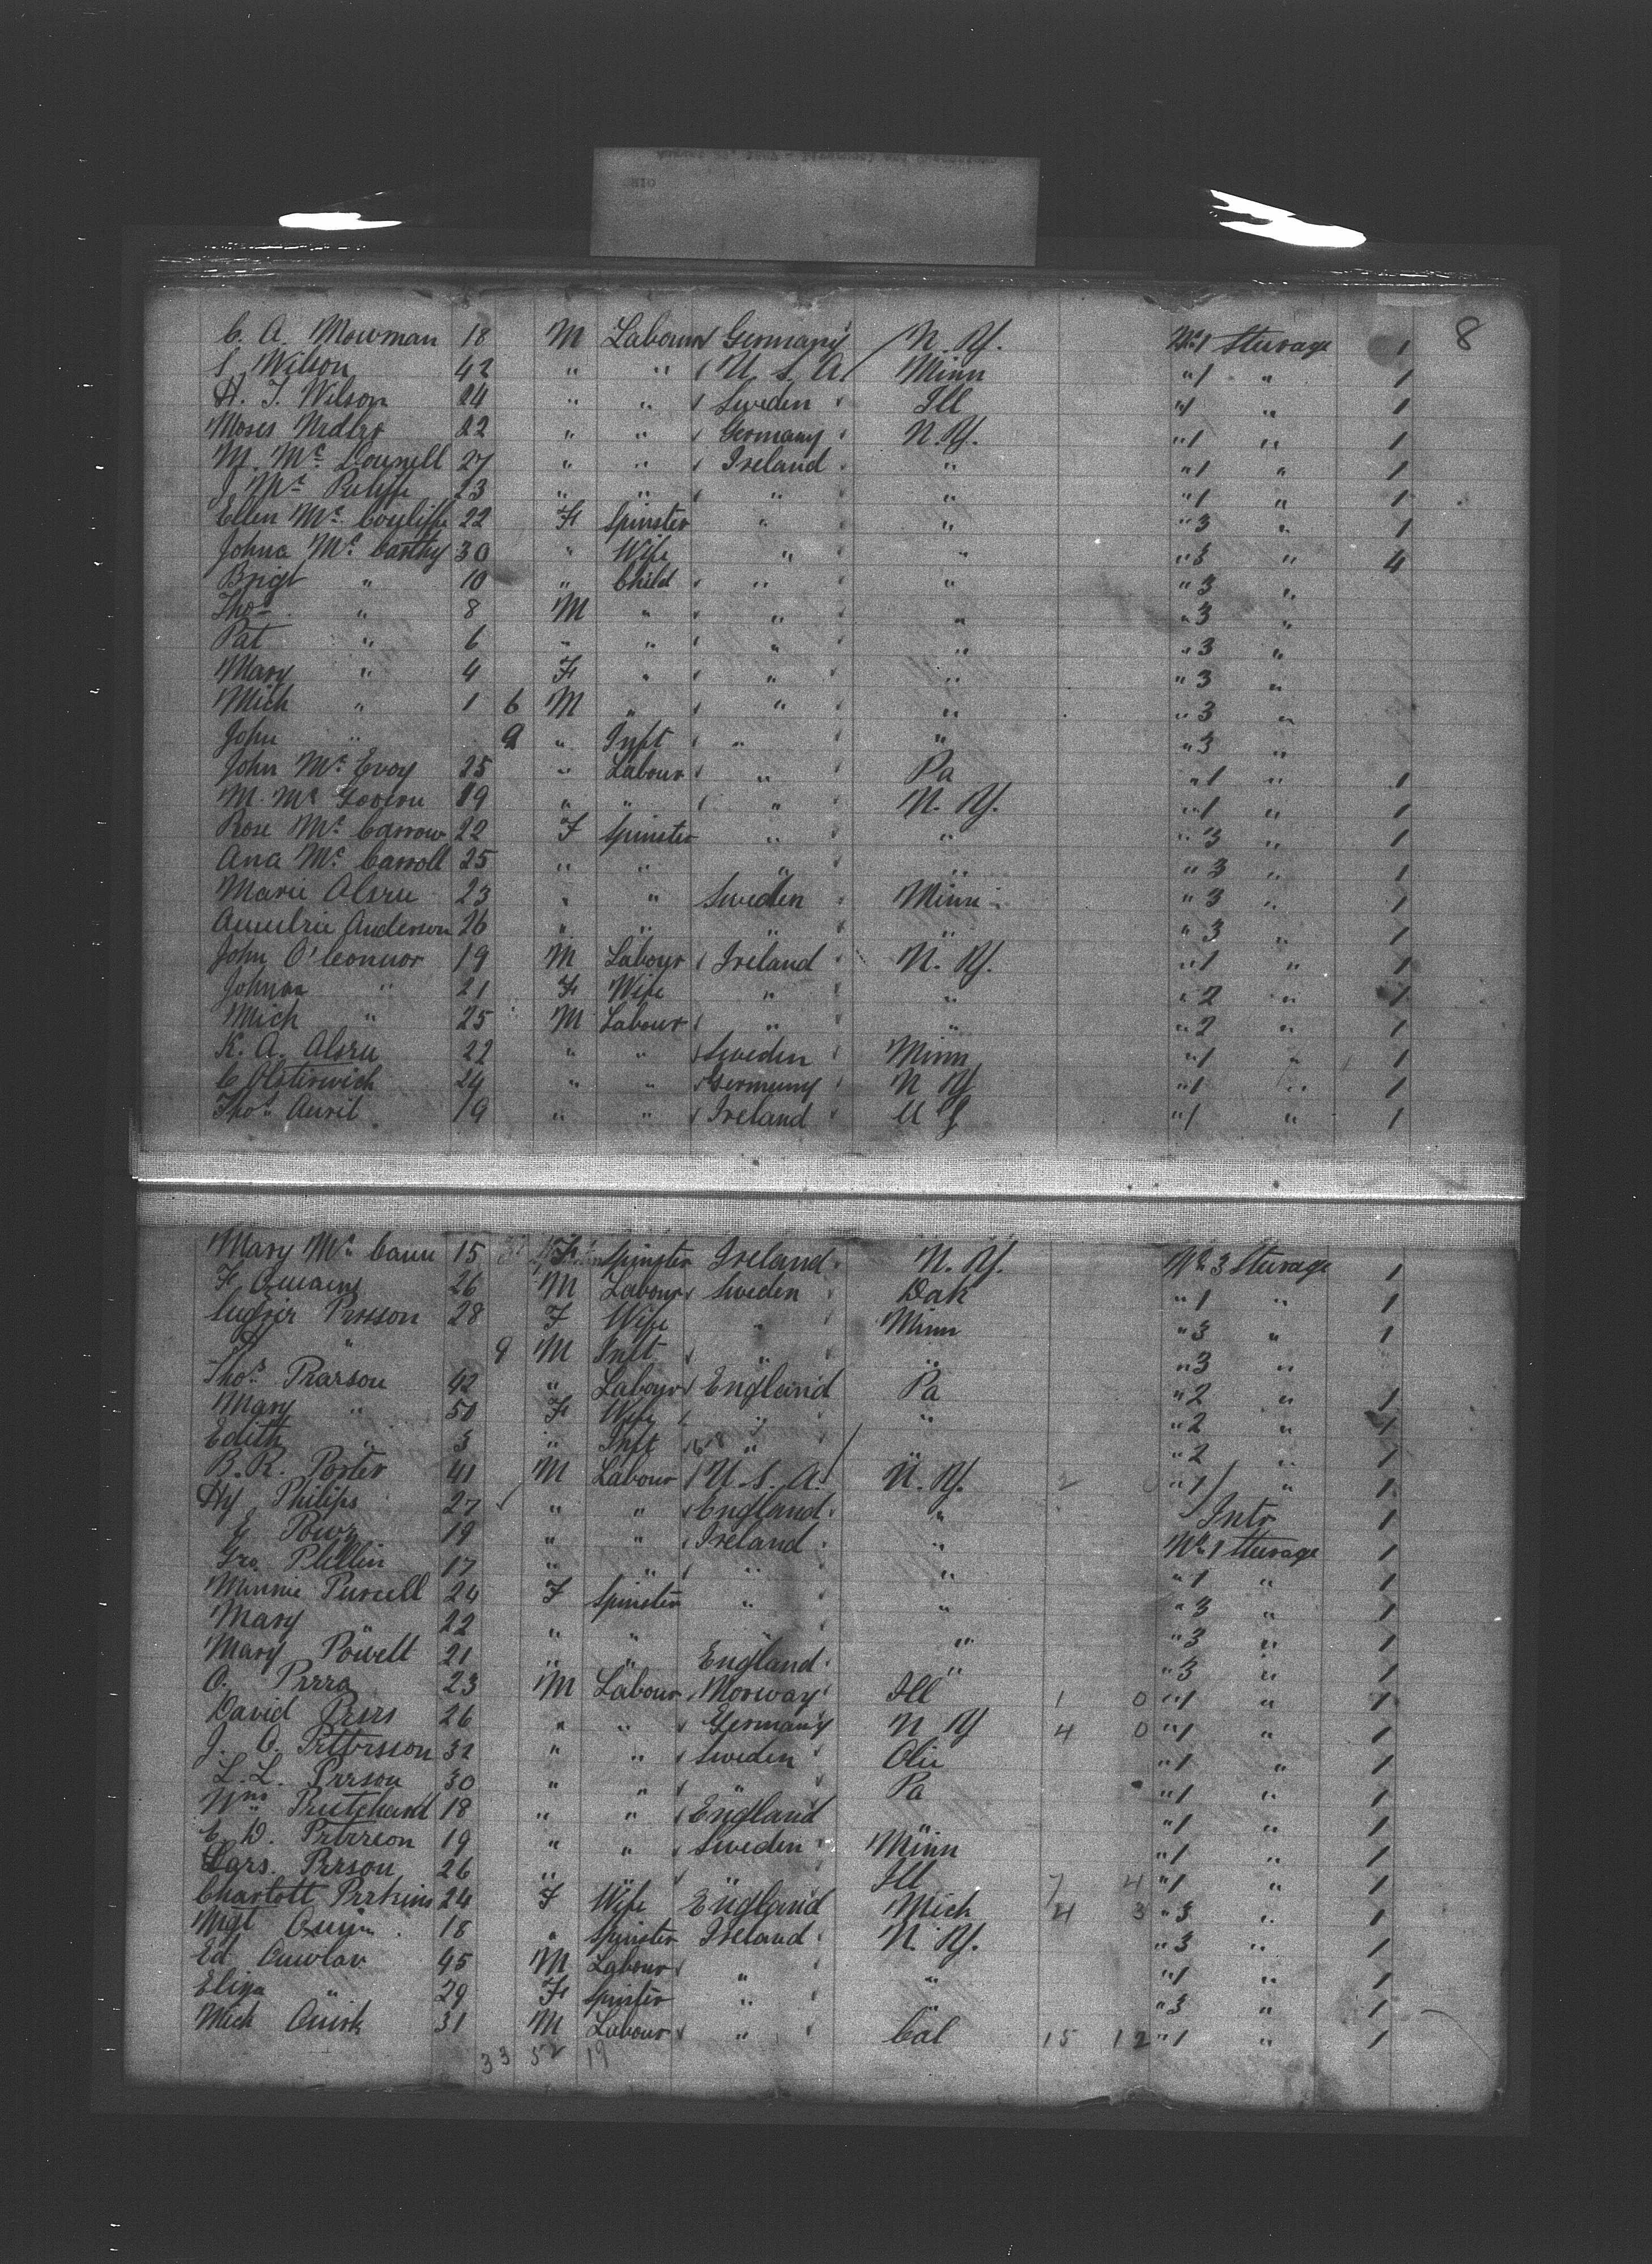 8
C. A. Mowman 18 M Labour Germany N. Y. No 1 Sturage 1
S. Wilson 42 " " U. S. A. Minn " 1 " 1
H. J. Wilson 24 " " Sweden Ill " 1 " 1
Moses 22 " " Germany N. Y. " 1 " 1
M. Mc Donnell 27 " " Ireland " " 1 " 1
J. Mc 23 " " " " " 1 " 1
Ellen Mc 22 F Spinster " " " 3 " 1
Johna Mc Carthy 30 " Wife " " " 3 " 4
Brigt " 10 " Child " " " 3 "
Thos " 8 M " " " " 3 "
Pat " 6 " " " " " 3 "
Mary " 4 F " " " " 3 "
Mich " 1 6 M " " " " 3 "
John " 9 " Inft " " " 3 "
John Mc Evoy 25 " Labour " Pa " 1 " 1
M. Mc Govern 19 " " " N. Y. " 1 " 1
Rose Mc Carrow 22 F Spinster " " " 3 " 1
Ana Mc Carroll 25 " " " " " 3 " 1
Marie Olsru 23 " " Sweden Minn " 3 " 1
Anderson 26 " " " " " 3 " 1
John O'Connor 19 M Labour Ireland N. Y. " 1 " 1
Johna " 21 F Wife " " " 2 " 1
Mich " 25 M Labour " " " 2 " 1
K. A. Olsru 22 " " Sweden Minn " 1 " 1
C Olsterwich 24 " " Germany N Y " 1 " 1
Thos Avril 19 " " Ireland " 1 " 1
Mary Mc Cann 15 F Spinster Ireland N. Y. No 3 Sturage 1
F. 26 M Labour Sweden Dak " 1 " 1
Prsson 28 F Wife " Minn " 3 " 1
" 9 M Inft " " " 3 "
Thos Prarson 42 " Labour England Pa " 2 " 1
Mary " 50 F Wife " " " 2 " 1
Edith " 3 " Inft " " 2 " 1
B. R. Porter 41 M Labour U. S. A. N. Y. 2 0 " 1 " 1
Hy Philips 27 " " England " Intr 1
E Powr 19 " " Ireland " No 1 Sturage 1
Geo 17 " " " " " 1 " 1
Minnie Purcell 24 F Spinster " " " 3 " 1
Mary " 22 " " " " " 3 " 1
Mary Powell 21 " " England " " 3 " 1
O. Prrra 23 M Labour Norway Ill 1 0 " 1 " 1
David 26 " " Germany N Y 4 0 " 1 " 1
J. O. Prttrsson 32 " " Sweden " 1 " 1
L. L. Prrson 30 " " " Pa " 1 " 1
Wm Prutchard 18 " " England " " 1 " 1
E. D. Prtrrson 19 " " Sweden Minn " 1 " 1
Lars. Prrson 26 " " " Ill 7 4 " 1 " 1
Charlott Prrkins 24 F Wife England Mich 4 3 " 3 " 1
Mgt Quin 18 " Spinster Ireland N. Y. " 3 " 1
Ed 45 M Labour " " " 1 " 1
Eliza " 29 F Spinster " " " 3 " 1
Mich Quirk 31 M Labour " Cal 15 12 " 1 " 1
33 52 19